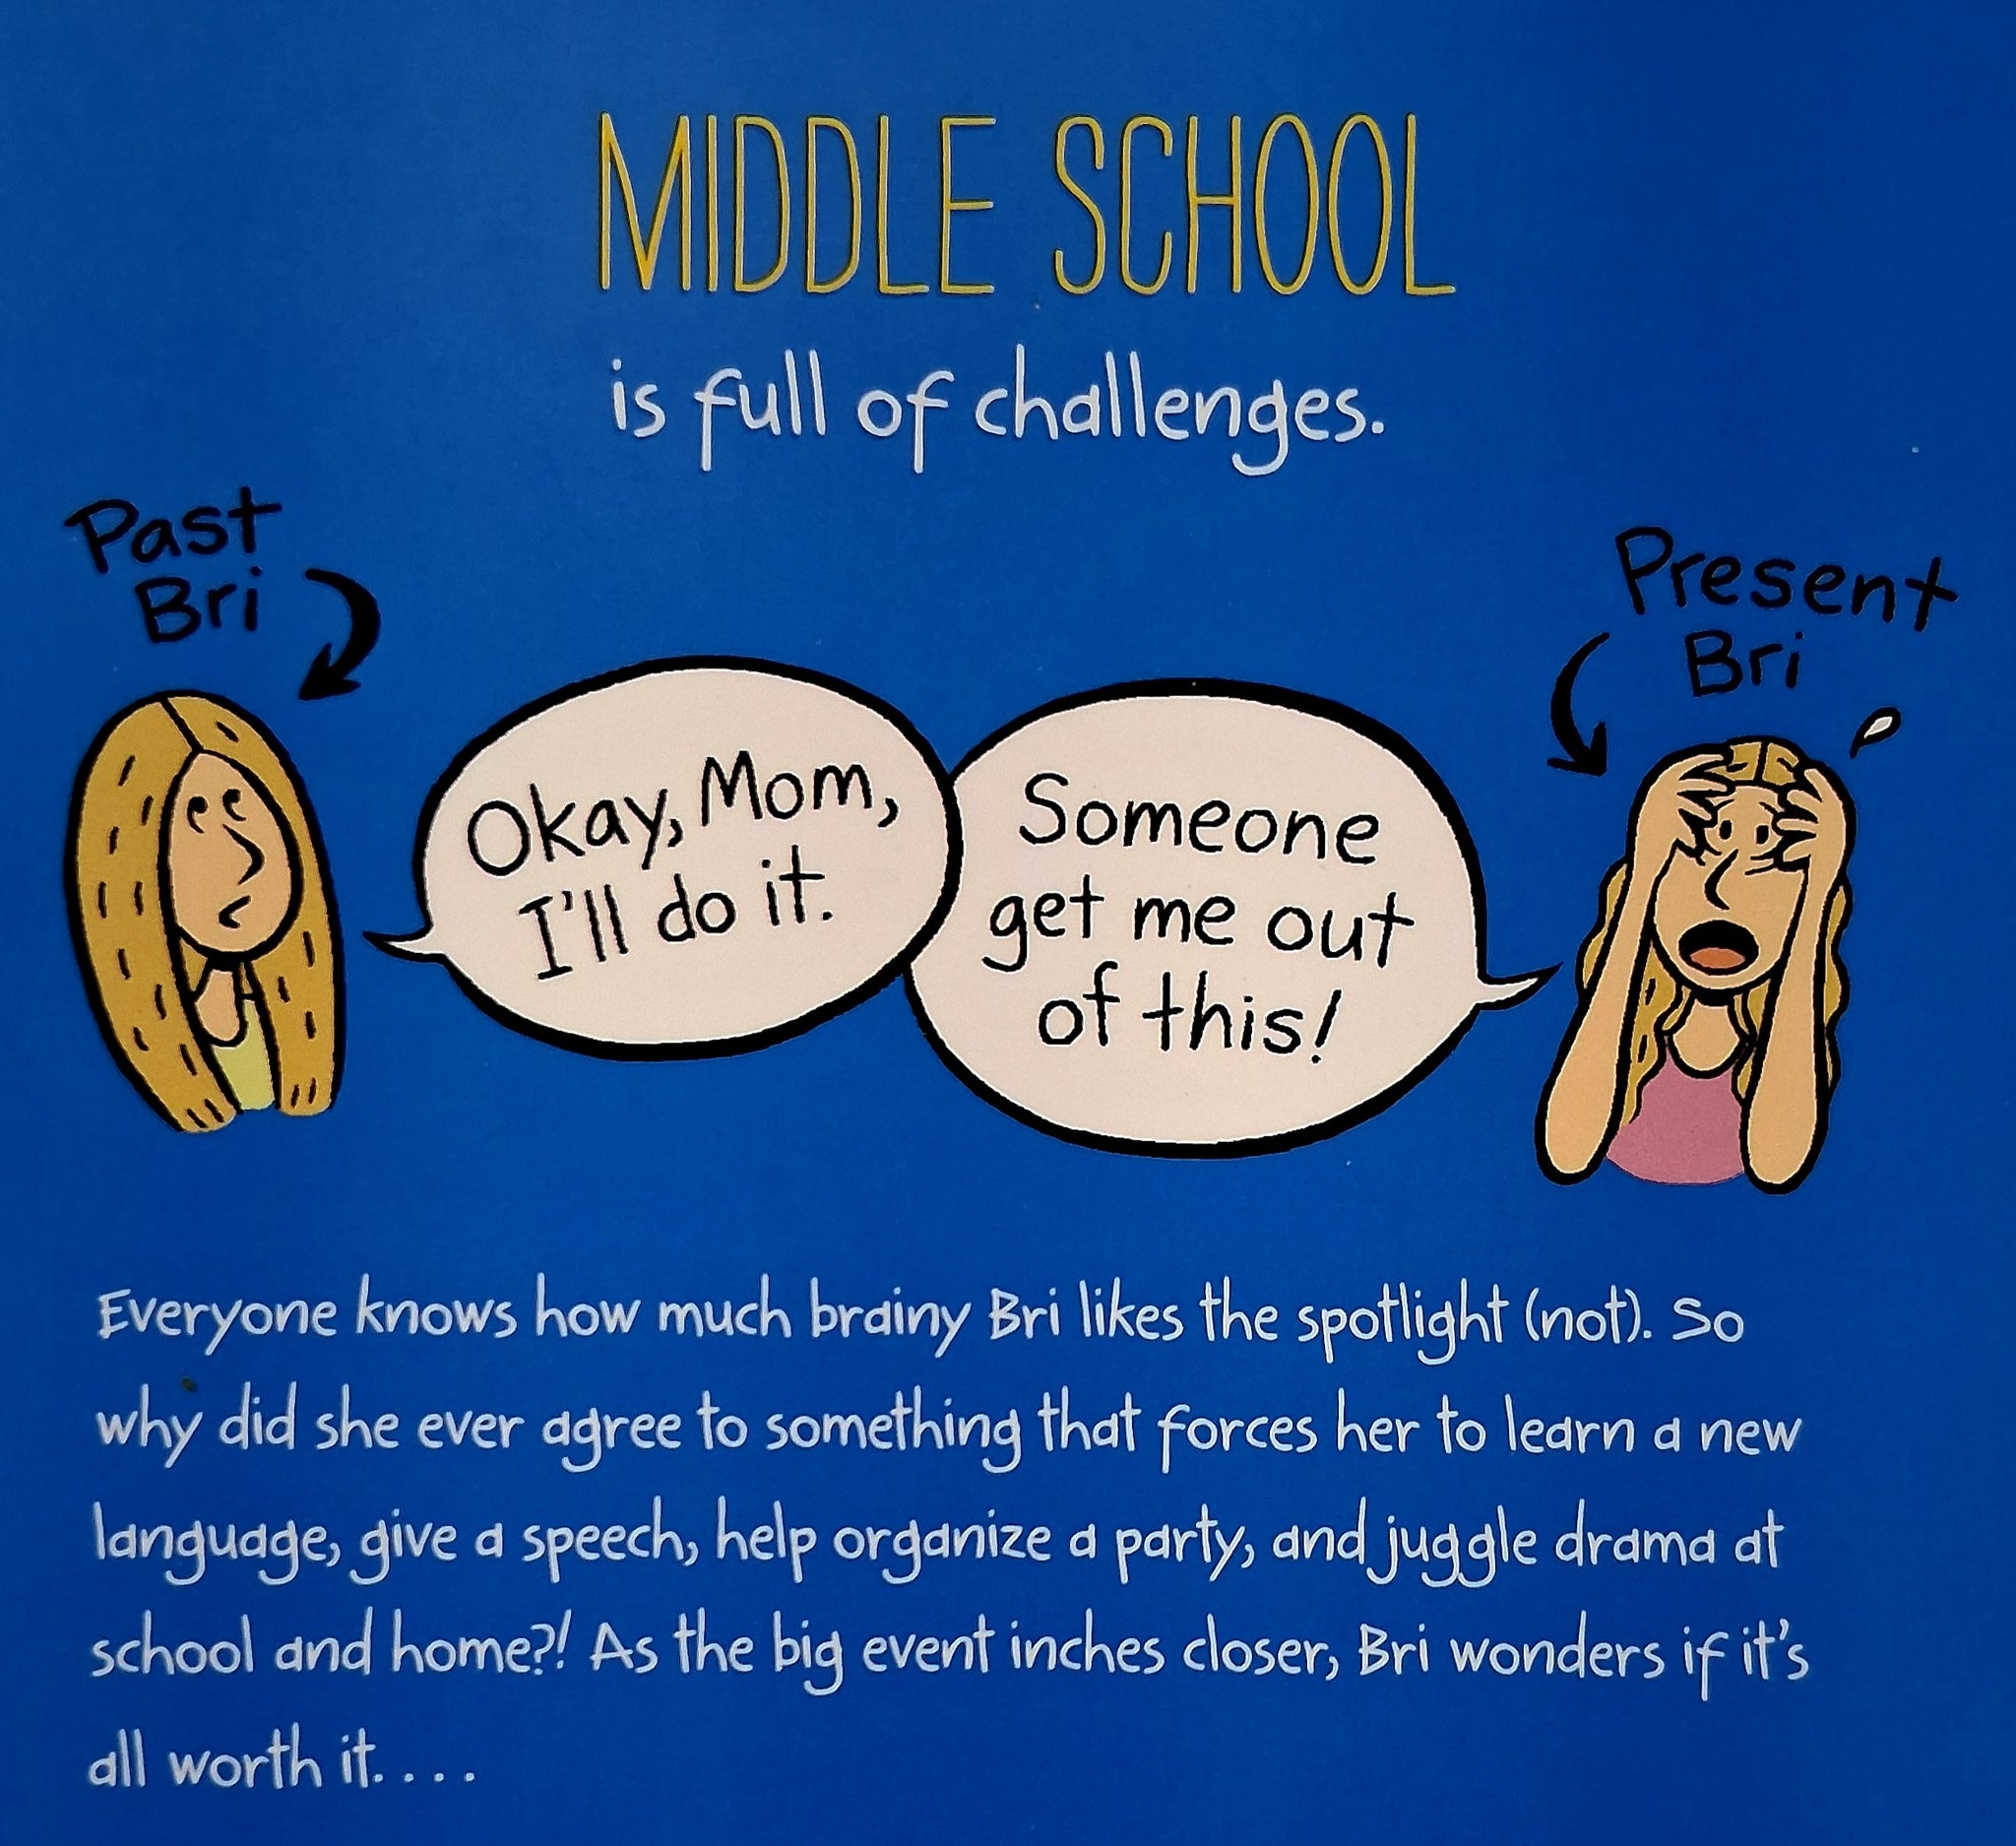 MIDDLE SCHOOL
is full of challenges.
Past
Bri
Okay, Mom,
I'll do it.
Someone
get me out
of this!
Present
Bri
Everyone knows how much brainy Bri likes the spotlight (not). So
why did she ever agree to something that forces her to learn a new
language, give a speech, help organize a party, and juggle drama at
school and home?! As the big event inches closer, Bri wonders if it's
all worth it. . . .